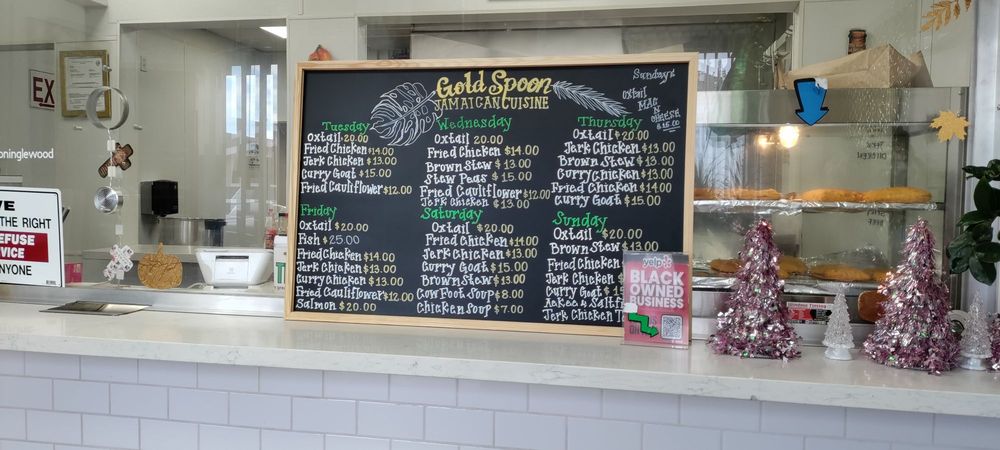 Gold Spoon
JAMAICAN CUISINE
Sundays
Oxtail
MAC
N
CHEESE
Tuesday
Oxtail 20.00
Fried Chicken $14.00
Jerk Chicken $13.00
Curry Goat $15.00
Fried Cauliflower $12.00
Wednesday
Oxtail 20.00
Fried Chicken $14.00
Brown Stew $13.00
Stew Peas $15.00
Fried Cauliflower $12.00
Jerk Chicken $13.00
Thursday
Oxtail $20.00
Jerk Chicken $13.00
Brown Stew $13.00
Curry Chicken $13.00
Fried Chicken $14.00
Curry Goat $15.00
Friday
Oxtail $20.00
Fish $25.00
Fried Chicken $14.00
Jerk Chicken $13.00
Curry Chicken $13.00
Fried Cauliflower $12.00
Salmon $20.00
Saturday
Oxtail $20.00
Fried Chicken $14.00
Jerk Chicken $13.00
Curry Goat $15.00
Brown Stew $13.00
Cow Foot Soup $8.00
Chicken Soup $7.00
Sunday
Oxtail $20.00
Brown Stew $13.00
Fried Chicken
Jerk Chicken
Curry Goat $1
Ackee & Saltf
Jerk Chicken
yelp
BLACK
OWNED
BUSINESS
EX
oninglewood
VE
THE RIGHT
REFUSE
VICE
ANYONE